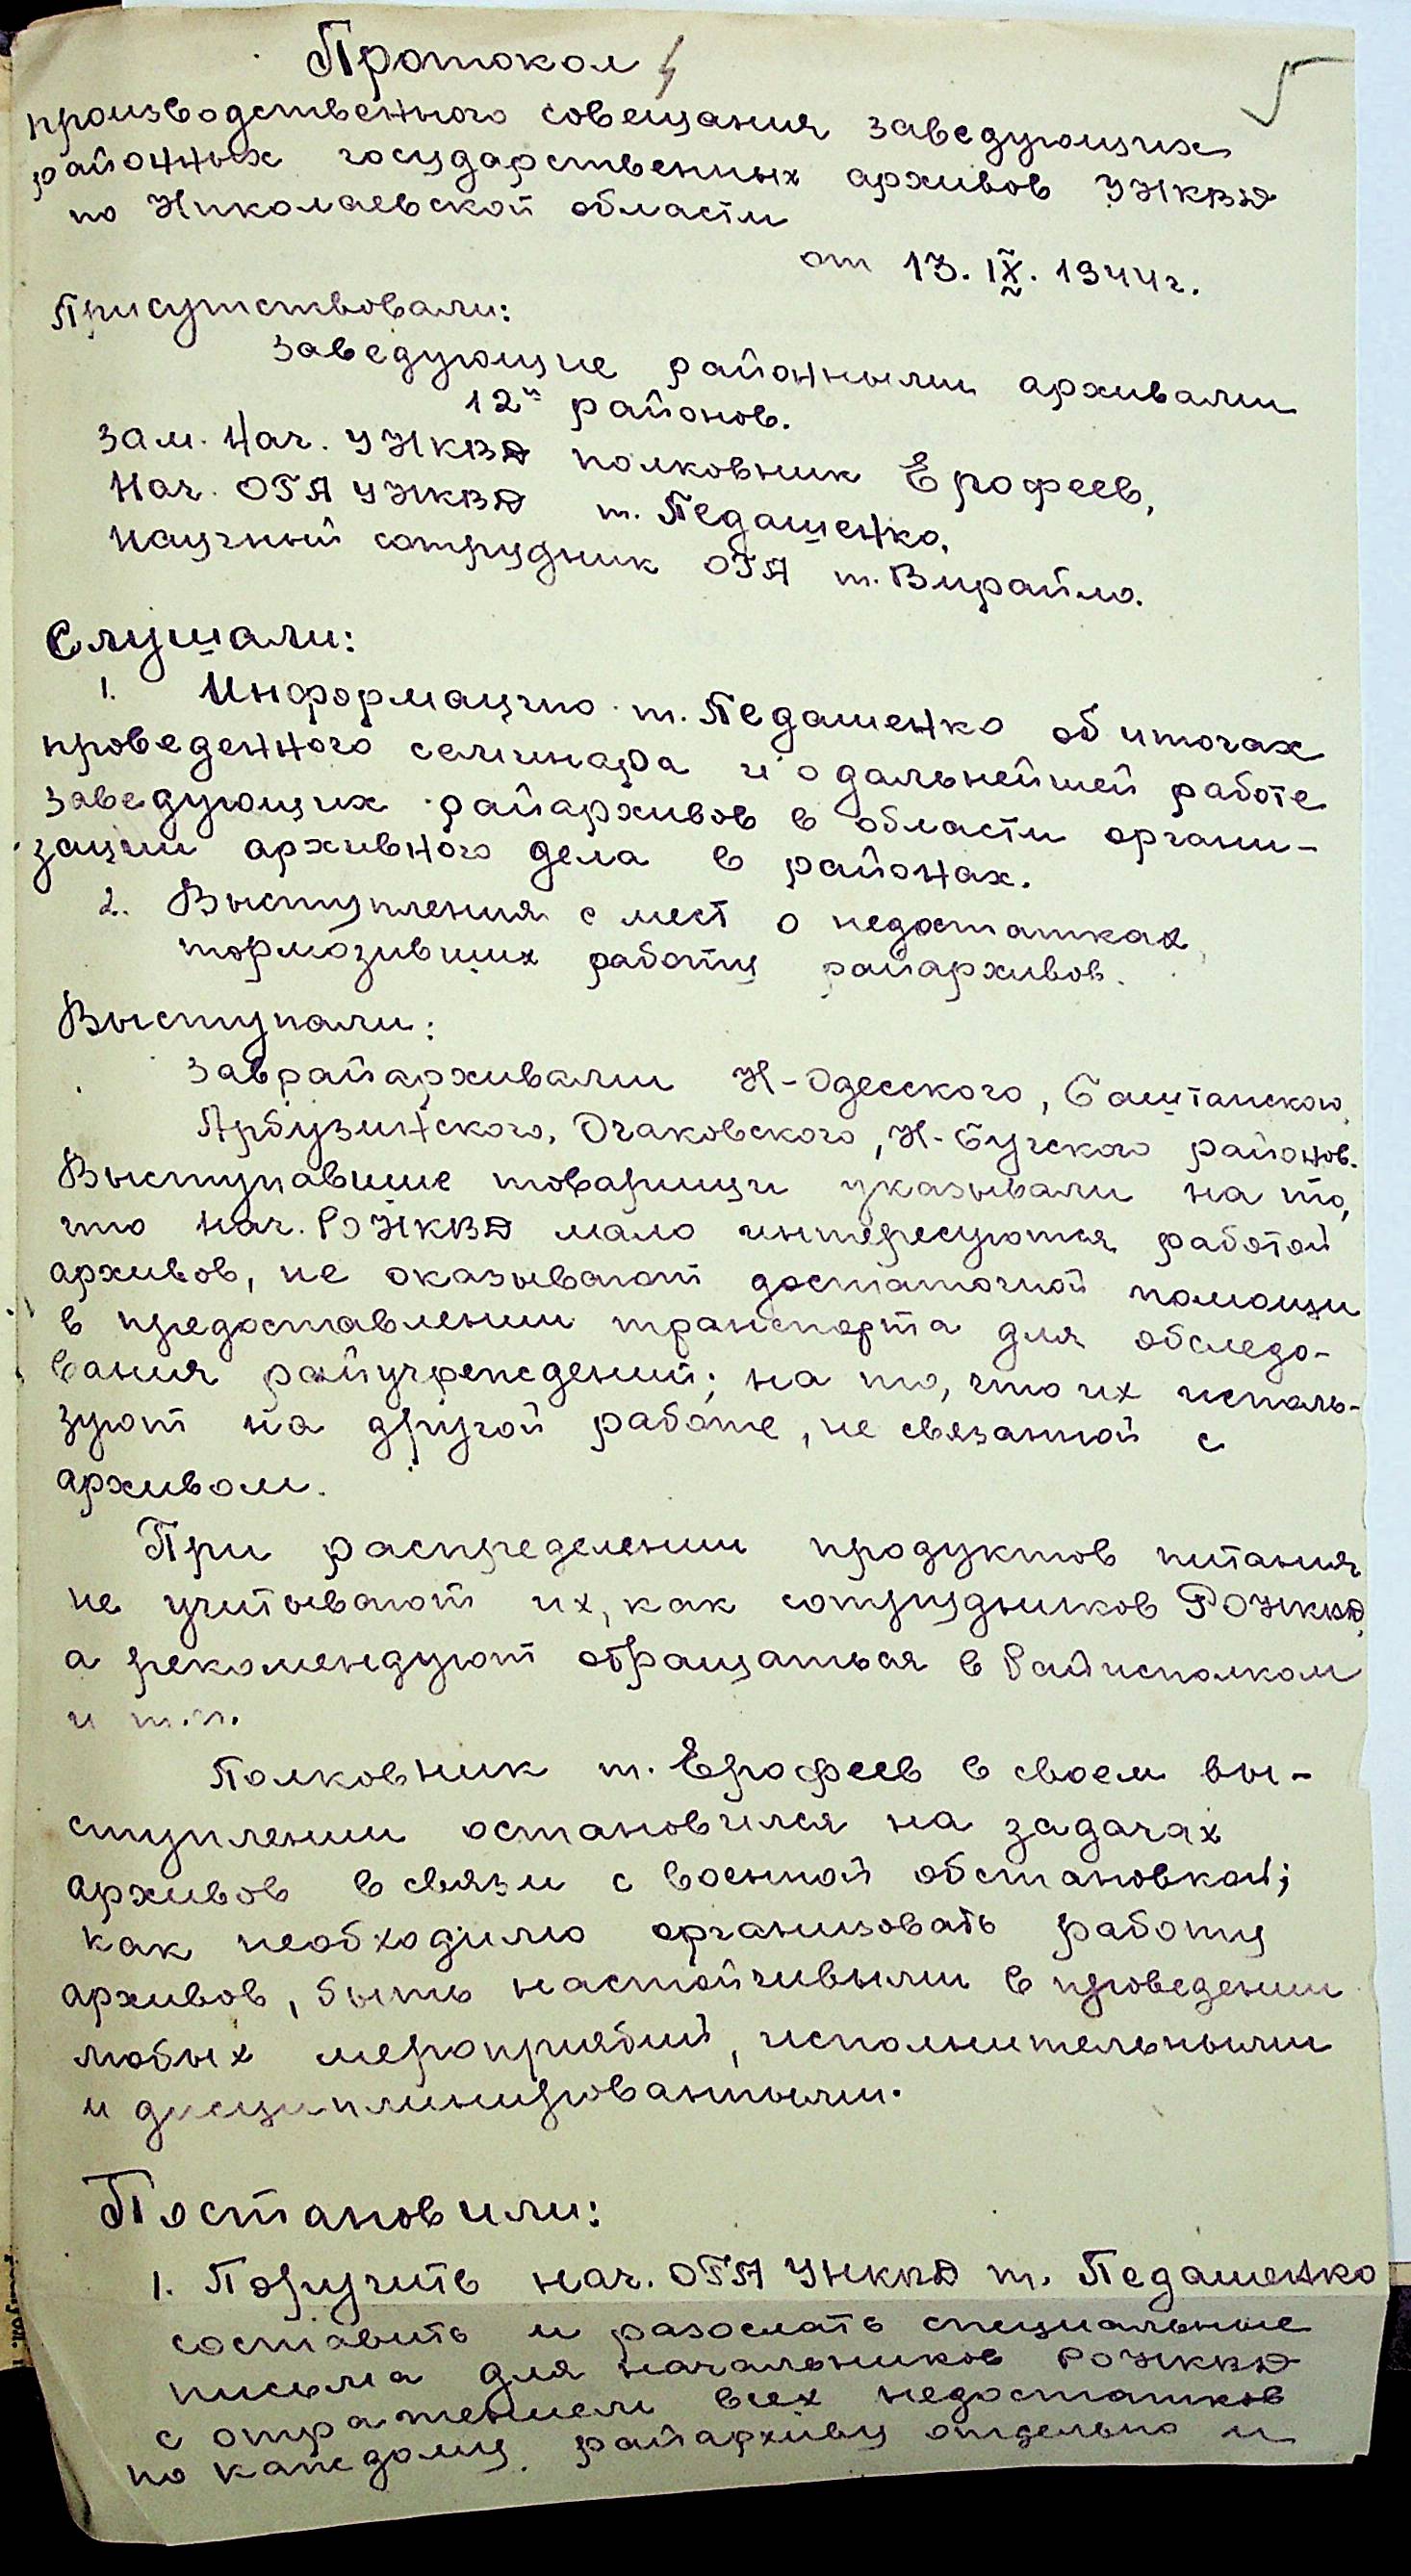 Протокол
производственного совещания заведующих
районных государственных архивов УНКВД
по Николаевской области
от 13. IX. 1944 г.
Присутствовали:
заведующие районными архивами
12ᵘ районов.
Зам. Нач. УНКВД полковник Ерофеев,
Нач. ОГА УНКВД т. Педашенко,
Научный сотрудник ОГА т. Вирайло.
Слушали:
1. Информацию т. Педашенко об итогах
проведенного семинара и о дальнейшей работе
заведующих райархивов в области органи-
зации архивного дела в районах.
2. Выступления с мест о недостатках,
тормозивших работу райархивов.
Выступали:
Заврайархивами Н-Одесского, Баштанского,
Арбузинского, Очаковского, Н-Бугского районов.
Выступавшие товарищи указывали на то,
что нач. РОНКВД мало интересуются работой
архивов, не оказывают достаточной помощи
в предоставлении транспорта для обследо-
вания райучреждений; на то, что их исполь-
зуют на другой работе, не связанной с
архивом.
При распределении продуктов питания
не учитывают их, как сотрудников РОНКВД,
а рекомендуют обращаться в Райисполком
и т.п.
Полковник т. Ерофеев в своем вы-
ступлении остановился на задачах
архивов в связи с военной обстановкой;
как необходимо организовать работу
архивов, быть настойчивыми в проведении
любых мероприятий, исполнительными
и дисциплинированными.
Постановили:
1. Поручить нач. ОГА УНКВД т. Педашенко
составить и разослать специальные
письма для начальников РОНКВД
с отражением всех недостатков
по каждому райархиву отдельно и